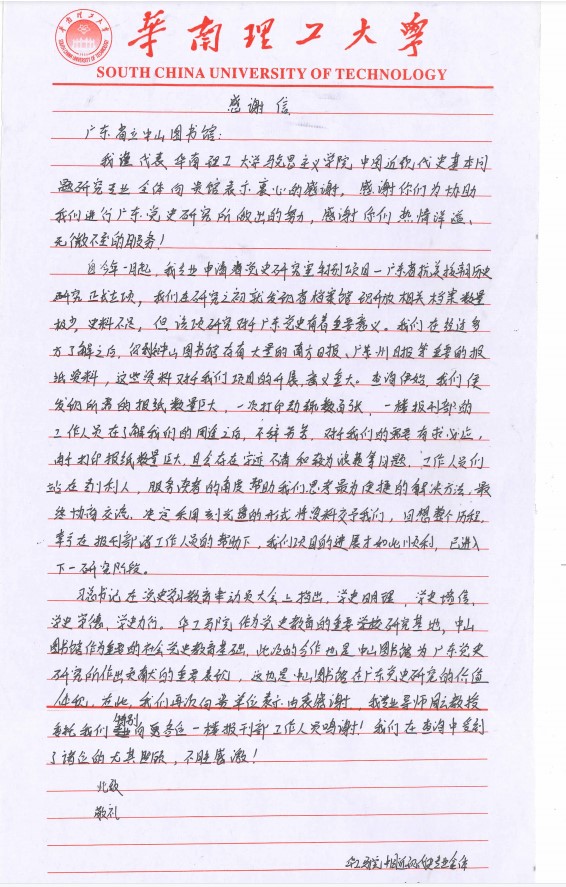 華南理工大學
SOUTH CHINA UNIVERSITY OF TECHNOLOGY
感谢信
广东省立中山图书馆：
我谨代表华南理工大学马克思主义学院中国近现代史基本问
题研究专业全体向贵馆表示衷心的感谢，感谢你们为协助
我们进行广东党史研究所做出的努力，感谢你们热情洋溢、
无微不至的服务！
自今年一月起，我专业申请着党史研究室特别项目—广东省抗美援朝历史
研究正式立项，我们在研究之初就发现省档案馆开放相关档案数量
极少，史料不足，但该项研究对于广东党史有着重要意义。我们在经过多
方了解之后，得到中山图书馆存有大量的南方日报、广州日报等重要的报
纸资料，这些资料对于我们项目的开展意义重大。查询伊始，我们便
发现所需的报纸数量巨大，一次打印动辄数百张，一楼报刊部的
工作人员在了解我们的用途之后，不辞劳苦，对于我们的需要有求必应，
由于打印报纸数量巨大，且会存在字迹不清和较为浪费等问题，工作人员们
站在利人，服务读者的角度帮助我们思考最为便捷的解决方法，最
终协商交流，决定采用刻光盘的形式将资料交予我们，回想整个历程，
幸亏在报刊部诸工作人员的帮助下，我们项目的进展才如此顺利，已进入
下一研究阶段。
习总书记在党史学习教育动员大会上指出，学史明理，学史增信，
学史崇德，学史力行。华工马院作为党史教育的重要学校研究基地，中山
图书馆作为重要的社会党史教育基础，此次的合作也是中山图书馆为广东党史
研究所作出贡献的重要表现，这也是中山图书馆在广东党史研究的价值
体现。在此，我们再次向贵单位表示由衷感谢，我专业导师教授
委托我们特别向一楼报刊部工作人员鸣谢！我们在查询中受到
了诸位的尤其照顾，不胜感激！
此致
敬礼
华工马院中国近现代史专业全体